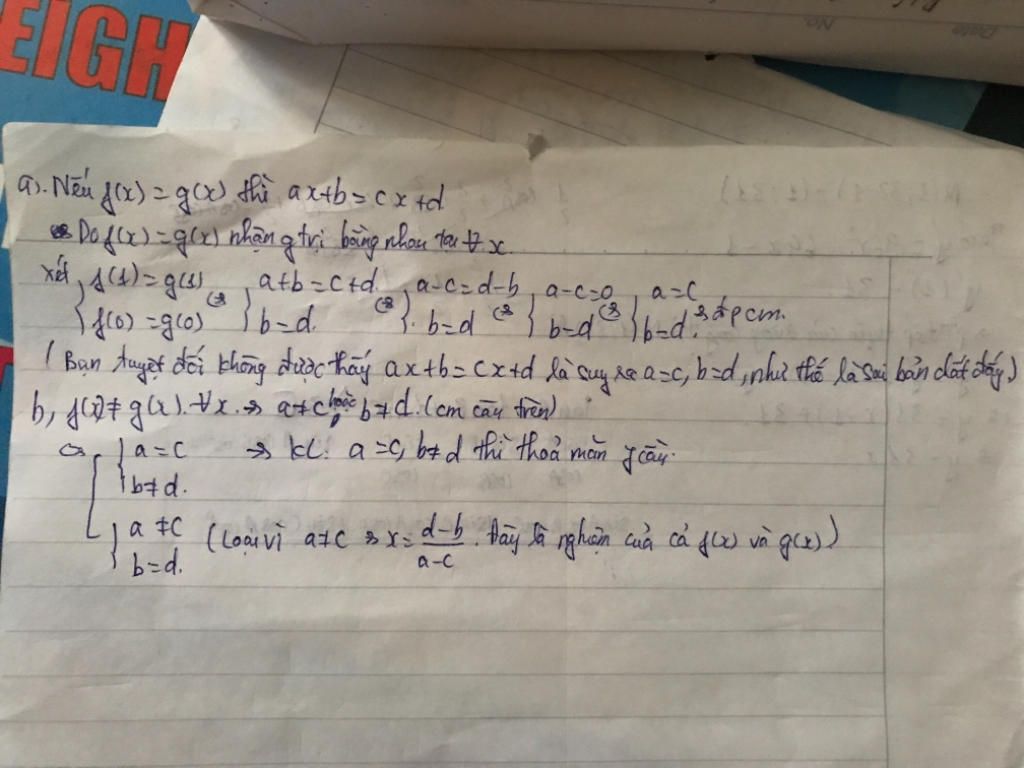 EIGH
Date
No.
a). Nếu f(x) = g(x) thì ax+b = cx+d
Do f(x) = g(x) nhận g trị bằng nhau tại ∀ x.
xét { f(1) = g(1) ⇔ { a+b = c+d. ⇔ { a-c = d-b ⇔ { a-c=0 ⇔ { a=c
{ f(0) = g(0) { b=d. { b=d { b=d { b=d. ⇒ đpcm.
( Bạn tuyệt đối không được thấy ax+b = cx+d là suy ra a=c, b=d, như thế là sai bản chất đấy.)
b, f(x) ≠ g(x). ∀x. ⇒ a≠c hoặc b≠d. (cm câu trên)
⇔ [ { a=c ⇒ KL: a=c, b≠d thì thoả mãn y cầu.
{ b≠d.
{ a≠c (Loại vì a≠c ⇒ x = \frac{d-b}{a-c}. Đây là nghiệm của cả f(x) và g(x))
{ b=d.